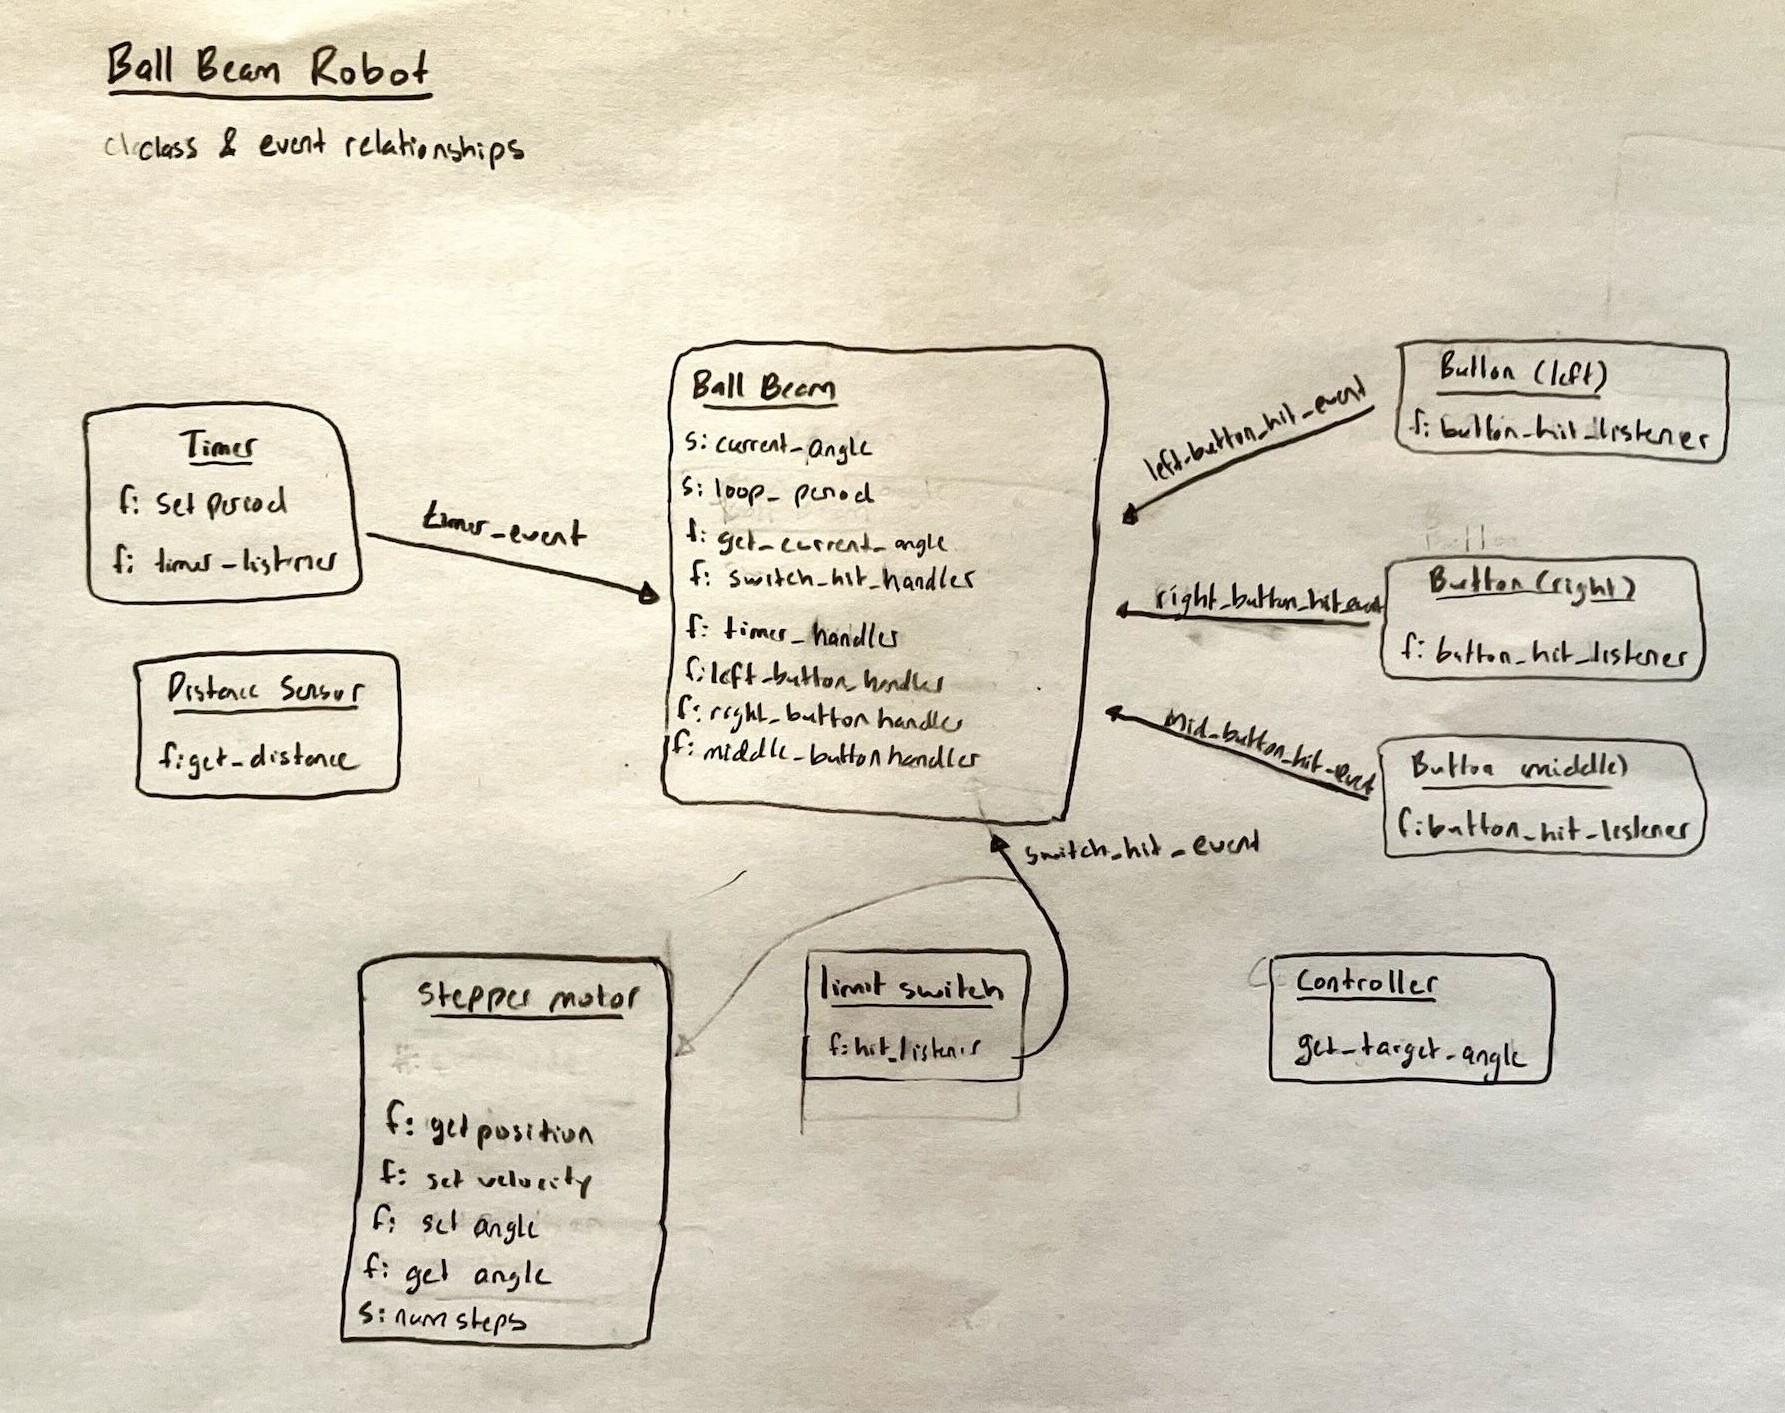 Ball Beam Robot
class & event relationships
Timer
f: set period
f: timer_listener
timer_event
Distance Sensor
f: get_distance
Ball Beam
s: current_angle
s: loop_period
f: get_current_angle
f: switch_hit_handler
f: timer_handler
f: left_button_handler
f: right_button handler
f: middle_button handler
left_button_hit_event
Button (left)
f: button_hit_listener
right_button_hit_event
Button (right)
f: button_hit_listener
Mid_button_hit_event
Button (middle)
f: button_hit_listener
switch_hit_event
Stepper motor
f: get position
f: set velocity
f: set angle
f: get angle
s: num steps
limit switch
f: hit_listener
Controller
get_target_angle